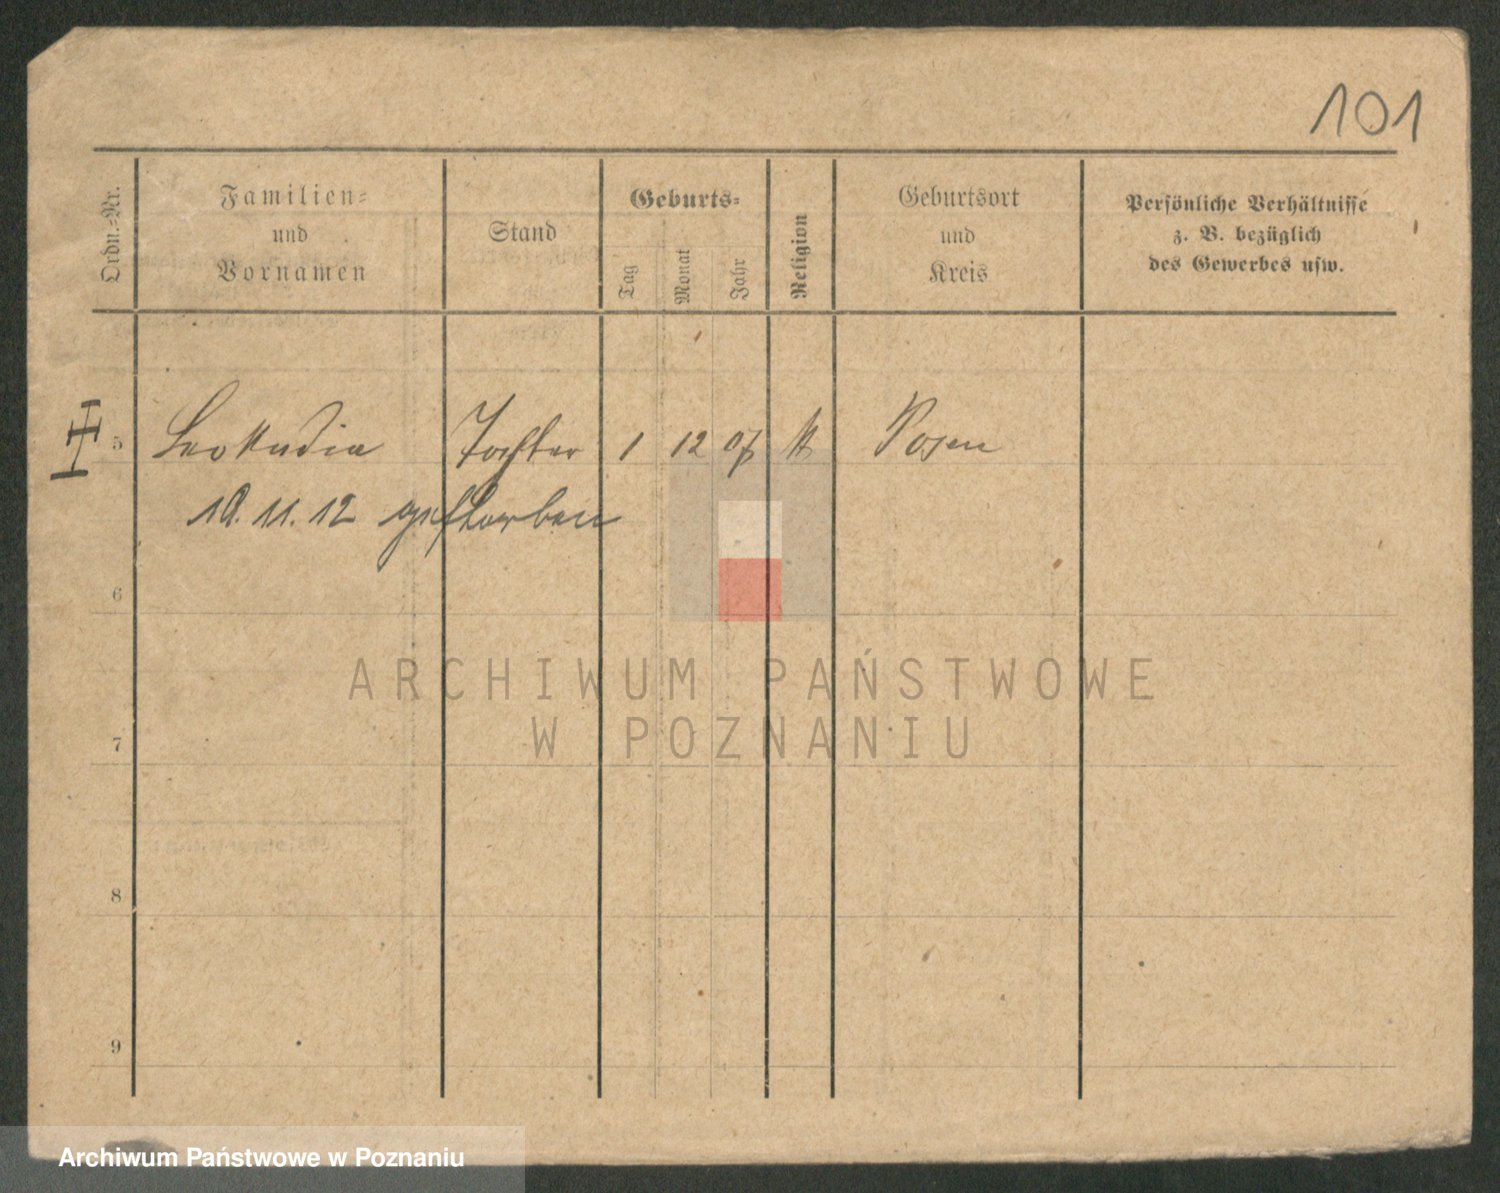 101
Ordn.-Nr.
Familien-
und
Vornamen
Stand
Geburts-
Tag
Monat
Jahr
Religion
Geburtsort
und
Kreis
Persönliche Verhältnisse
z. B. bezüglich
des Gewerbes usw.
5 Leokadia Tochter 1 12 07 k Posen
10.11.12 gestorben
6
7
8
9
ARCHIWUM PAŃSTWOWE
W POZNANIU
Archiwum Państwowe w Poznaniu